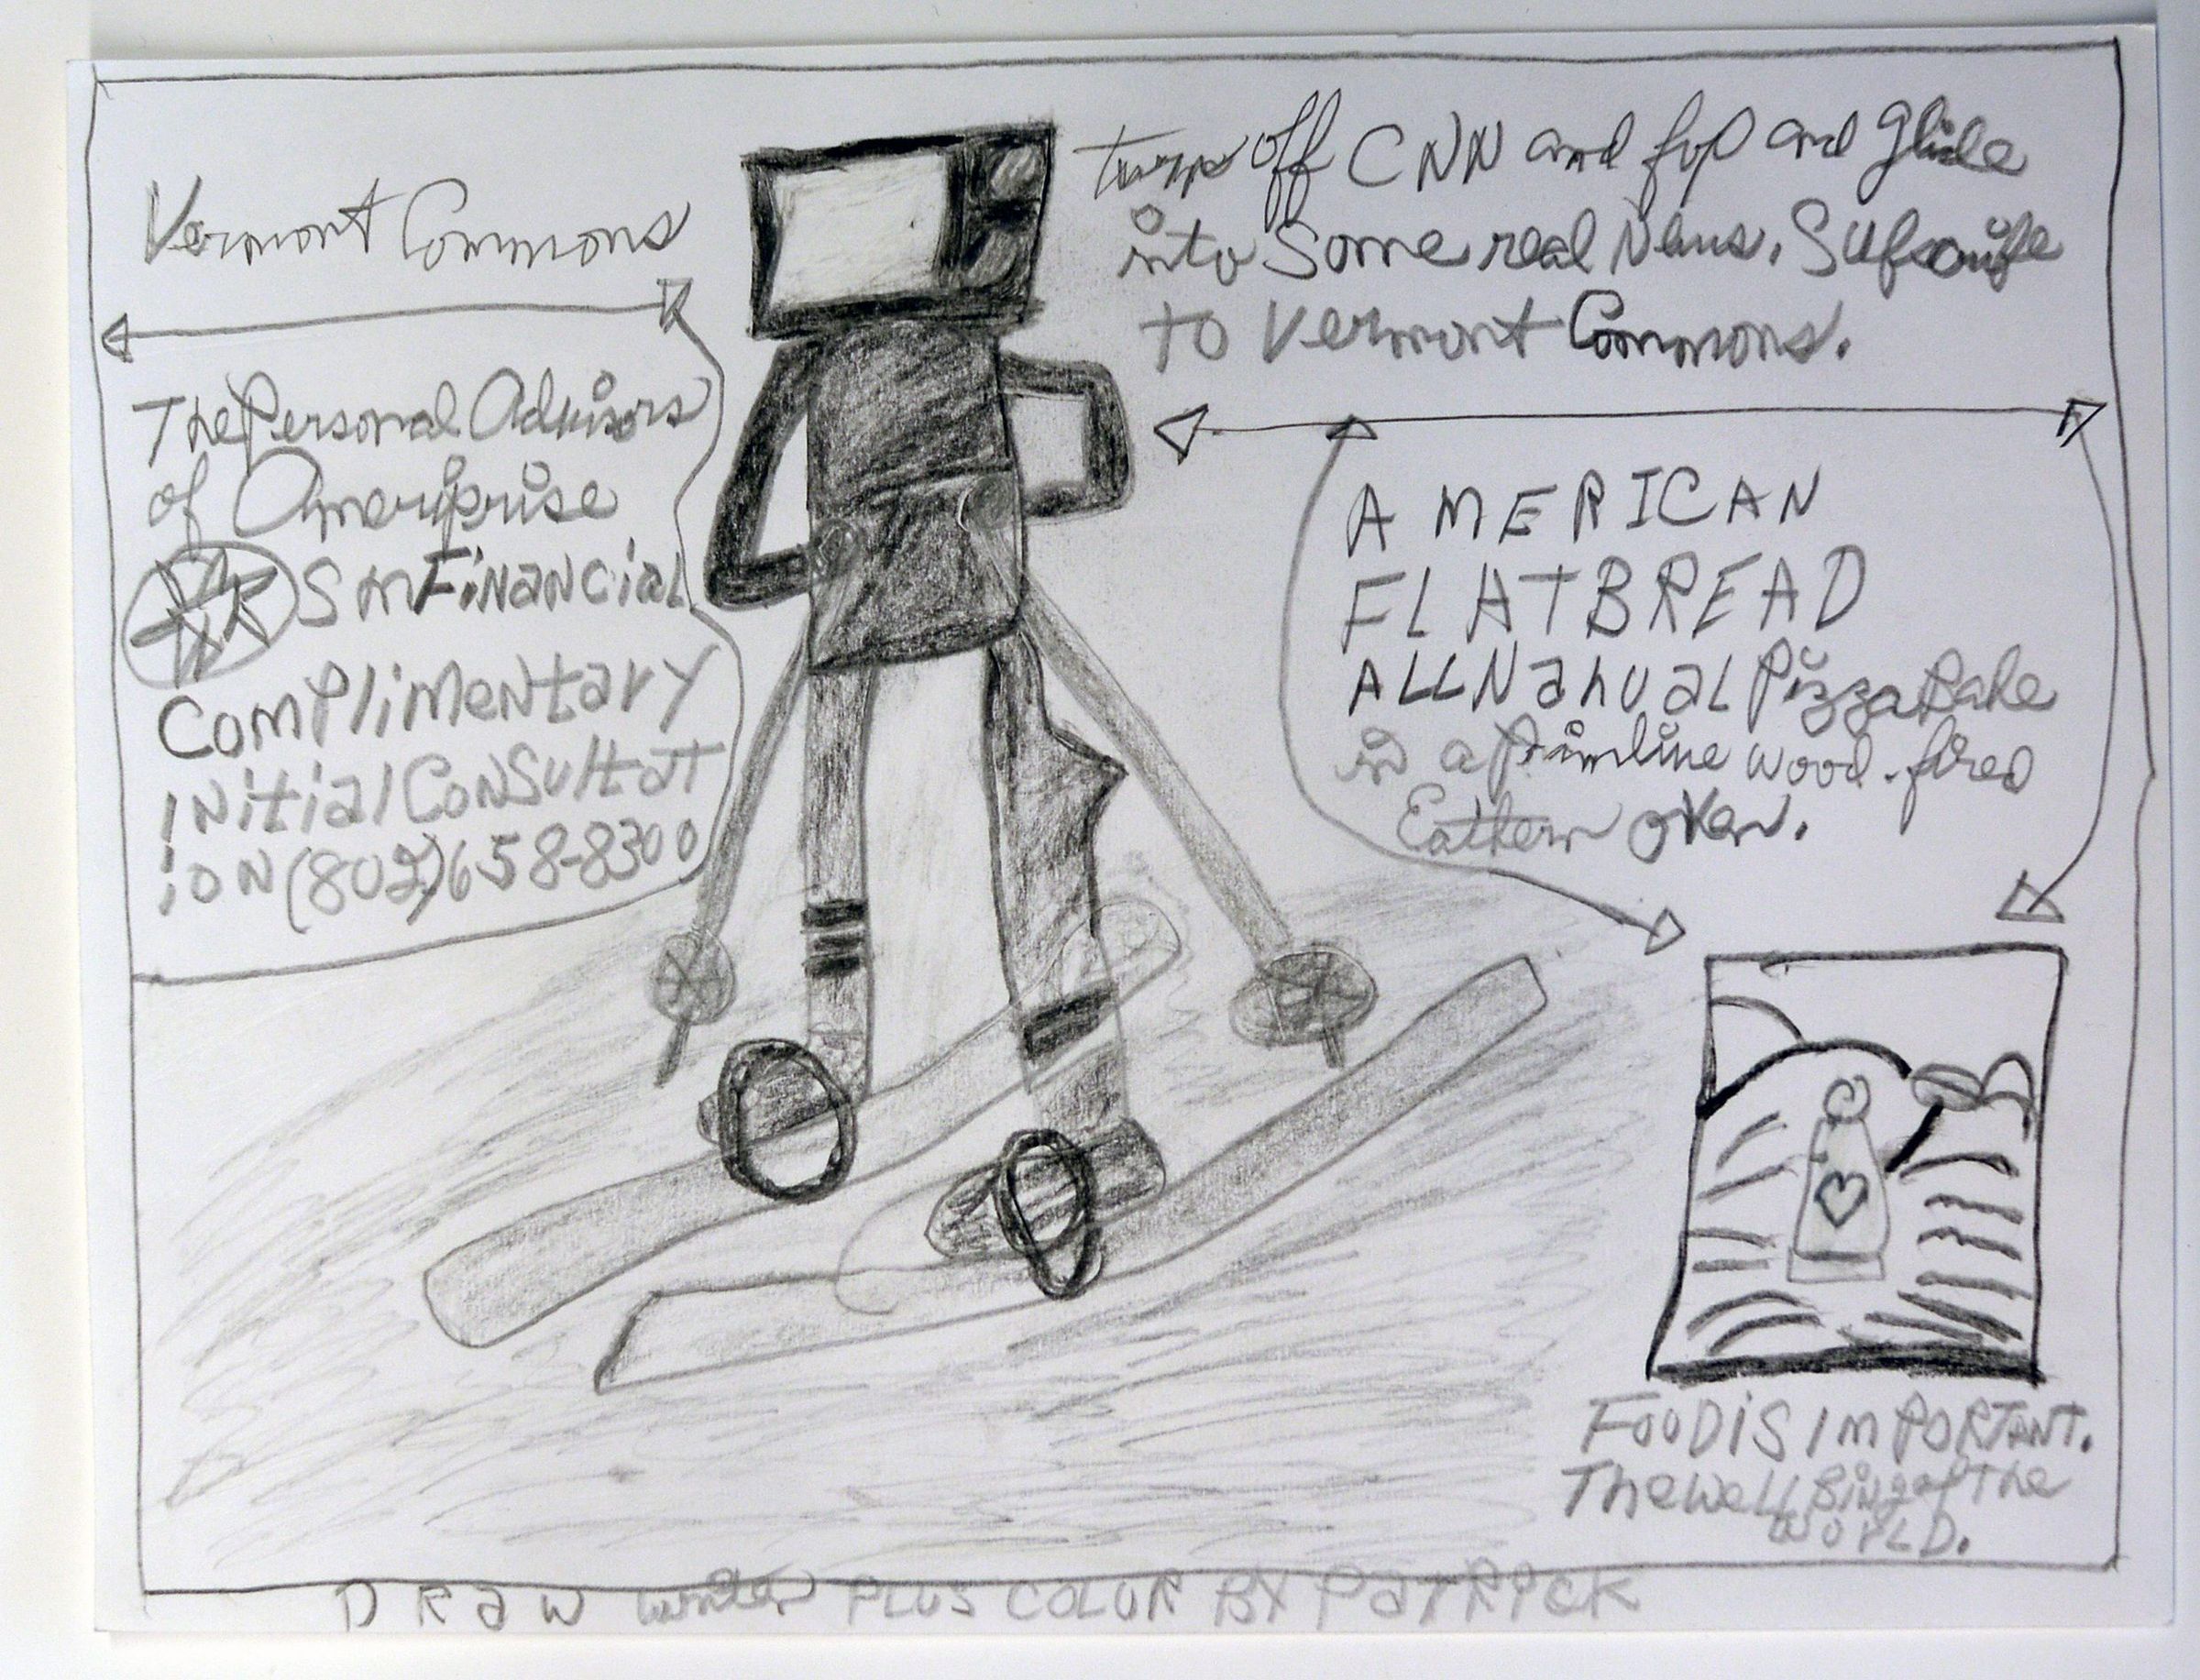 Vermont Commons
The Personal Advisors
of Ameriprise
Sm Financial
Complimentary
initial Consultat
ion (802) 658-8300
turn off CNN and fop and glide
into Some real News.
to Vermont Commons.
AMERICAN
FLATBREAD
ALL Nahual Pizza Bake
in a wood-fired
Eathern oven.
FOOD IS IMPORTANT.
The well Bing of The
WORLD.
DRaW writer PLUS COLOR BY PaTRICK